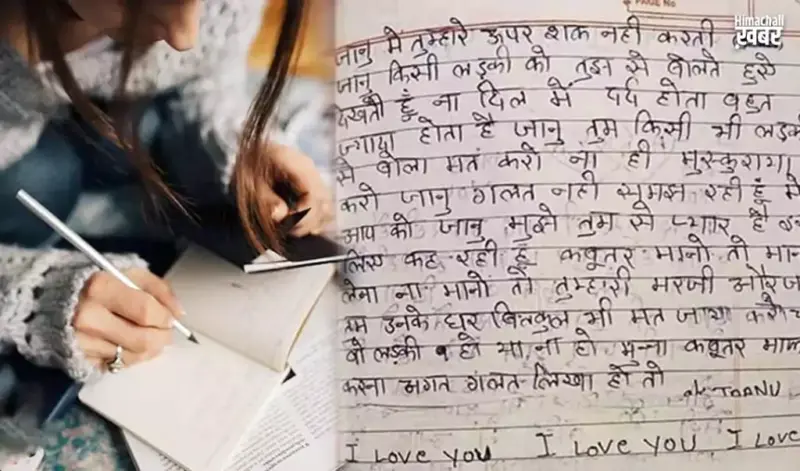 PAGE No
Himachali
ख़बर
जानु मे तुम्हारे ऊपर शक नही करती
जानु किसी लड़की को तुझ से बोलते हुऐ
देखती हूँ ना दिल में दर्द होता बहुत
ज्याया होता है जानु तुम किसी भी लड़की
से बोला मत करो ना ही मुस्कुराया
करो जानु गलत नही समझ रही हूँ में
आप को जानु मुझे तुम से प्यार है
लिए कह रही हूँ कबूतर मानो तो मान
लेना ना मानो तो तुम्हारी मरजी और
तुम उनके घर बिलकुल भी मत जाया करो
वो लड़की हो या ना हो मुन्ना कबूतर माफ
करना अगत गलत लिखा हो तो
I Love you I Love you I Love